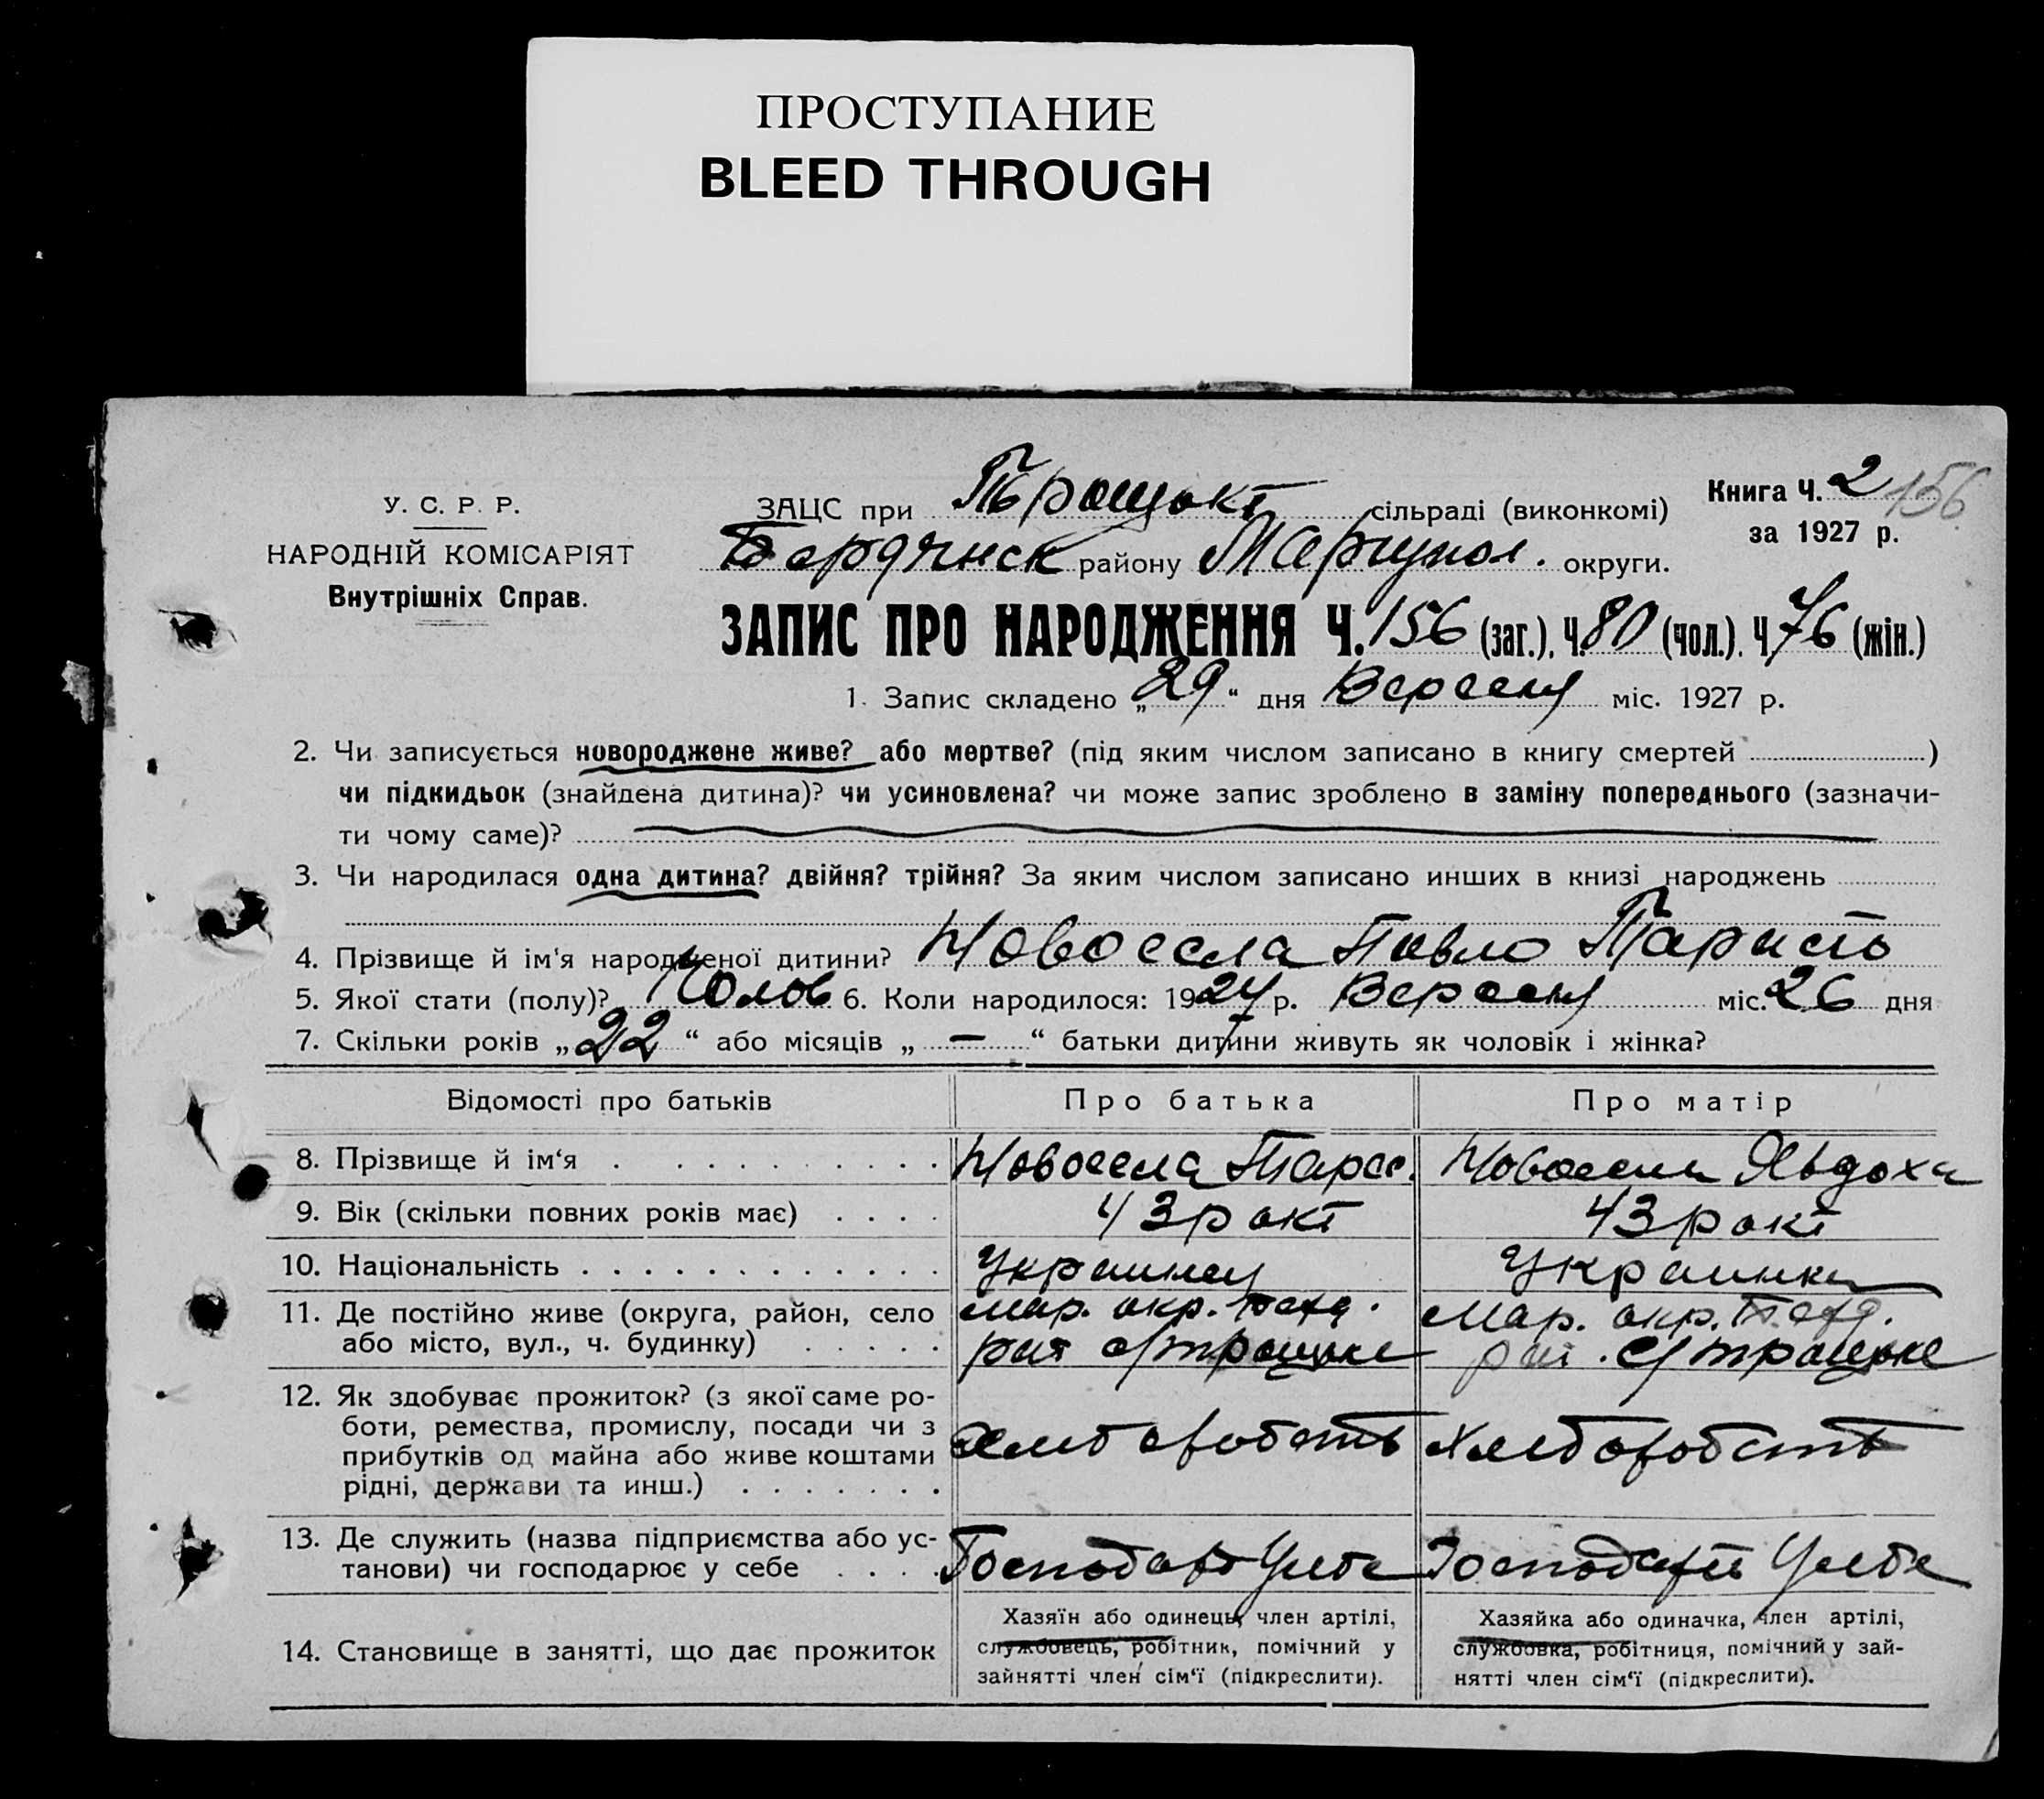 ПРОСТУПАНИЕ
BLEED THROUGH
У. С. Р. Р.
НАРОДНІЙ КОМІСАРІЯТ
Внутрішніх Справ.
ЗАЦС при сільраді (виконкомі)
Книга Ч. 2 156
за 1927 р.
Бердянск району Мариупол. округи.
ЗАПИС ПРО НАРОДЖЕННЯ Ч. 156 (заг.), Ч. 80 (чол.). Ч. 76 (жін.)
1. Запис складено „29“ дня Вересня міс. 1927 р.
2. Чи записується новороджене живе? або мертве? (під яким числом записано в книгу смертей )
чи підкидьок (знайдена дитина)? чи усиновлена? чи може запис зроблено в заміну попереднього (зазначи-
ти чому саме)?
3. Чи народилася одна дитина? двійня? трійня? За яким числом записано инших в книзі народжень
4. Прізвище й ім'я народженої дитини? Новосела Павло
5. Якої стати (полу)? 6. Коли народилося: 1927 р. Вересня міс. 26 дня
7. Скільки років „22“ або місяців „ — “ батьки дитини живуть як чоловік і жінка?
Відомості про батьків
Про батька
Про матір
8. Прізвище й ім‘я
Новосела Тарас.
Новосела Явдоха
9. Вік (скільки повних років має)
43 рокі
43 рокі
10. Національність
Украинец
Украинка
11. Де постійно живе (округа, район, село
або місто, вул., ч. будинку)
Мар. окр. Берд.
рай
Мар. окр. Берд.
рай.
12. Як здобуває прожиток? (з якої саме ро-
боти, ремества, промислу, посади чи з
прибутків од майна або живе коштами
рідні, держави та инш.)
Хлеборобств
Хлеборобств
13. Де служить (назва підприємства або ус-
танови) чи господарює у себе
Господарю У себе
У себе
14. Становище в занятті, що дає прожиток
Хазяїн або одинець, член артілі,
службовець, робітник, помічний у
зайнятті член сім‘ї (підкреслити).
Хазяйка або одиначка, член артілі,
службовка, робітниця, помічний у зай-
нятті член сім‘ї (підкреслити).